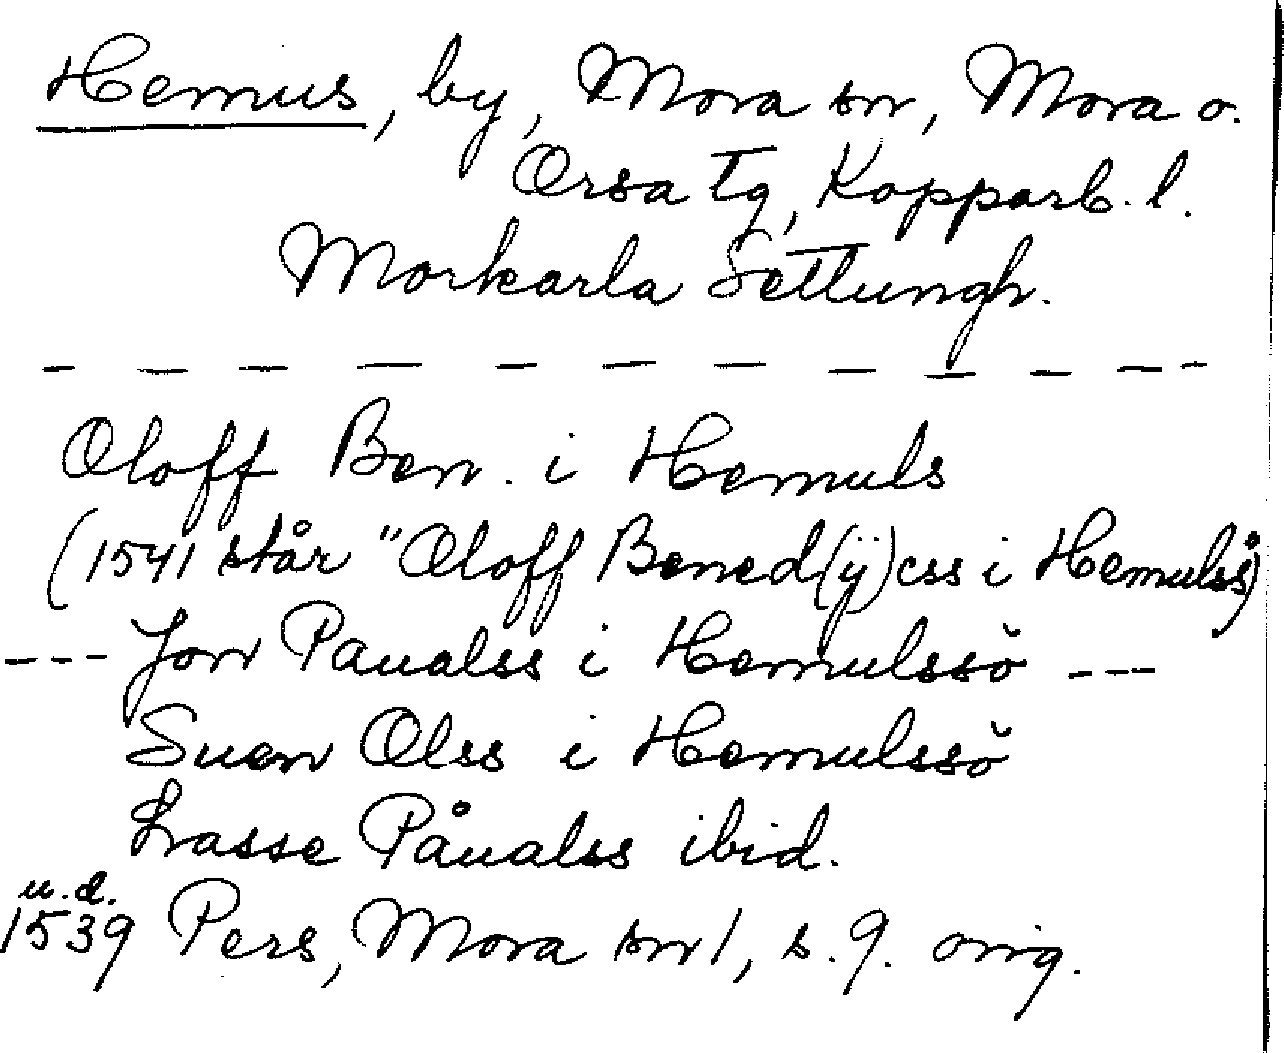 Hemus, by, Mora sn, Mora o.
Orsa tg, Kopparb. l.
Morkarla Settungh.
- - - - - - - - - - - -
Oloff Ben. i Hemuls
(1541 står "Oloff Bened(ÿ)css i Hemulså)
--- Jon Paualss i Hemulssŏ ---
Suen Olss i Hemulssŏ
Lasse Påualss ibid.
u.d.
1539 Pers, Mora sn 1, s. 9. orig.